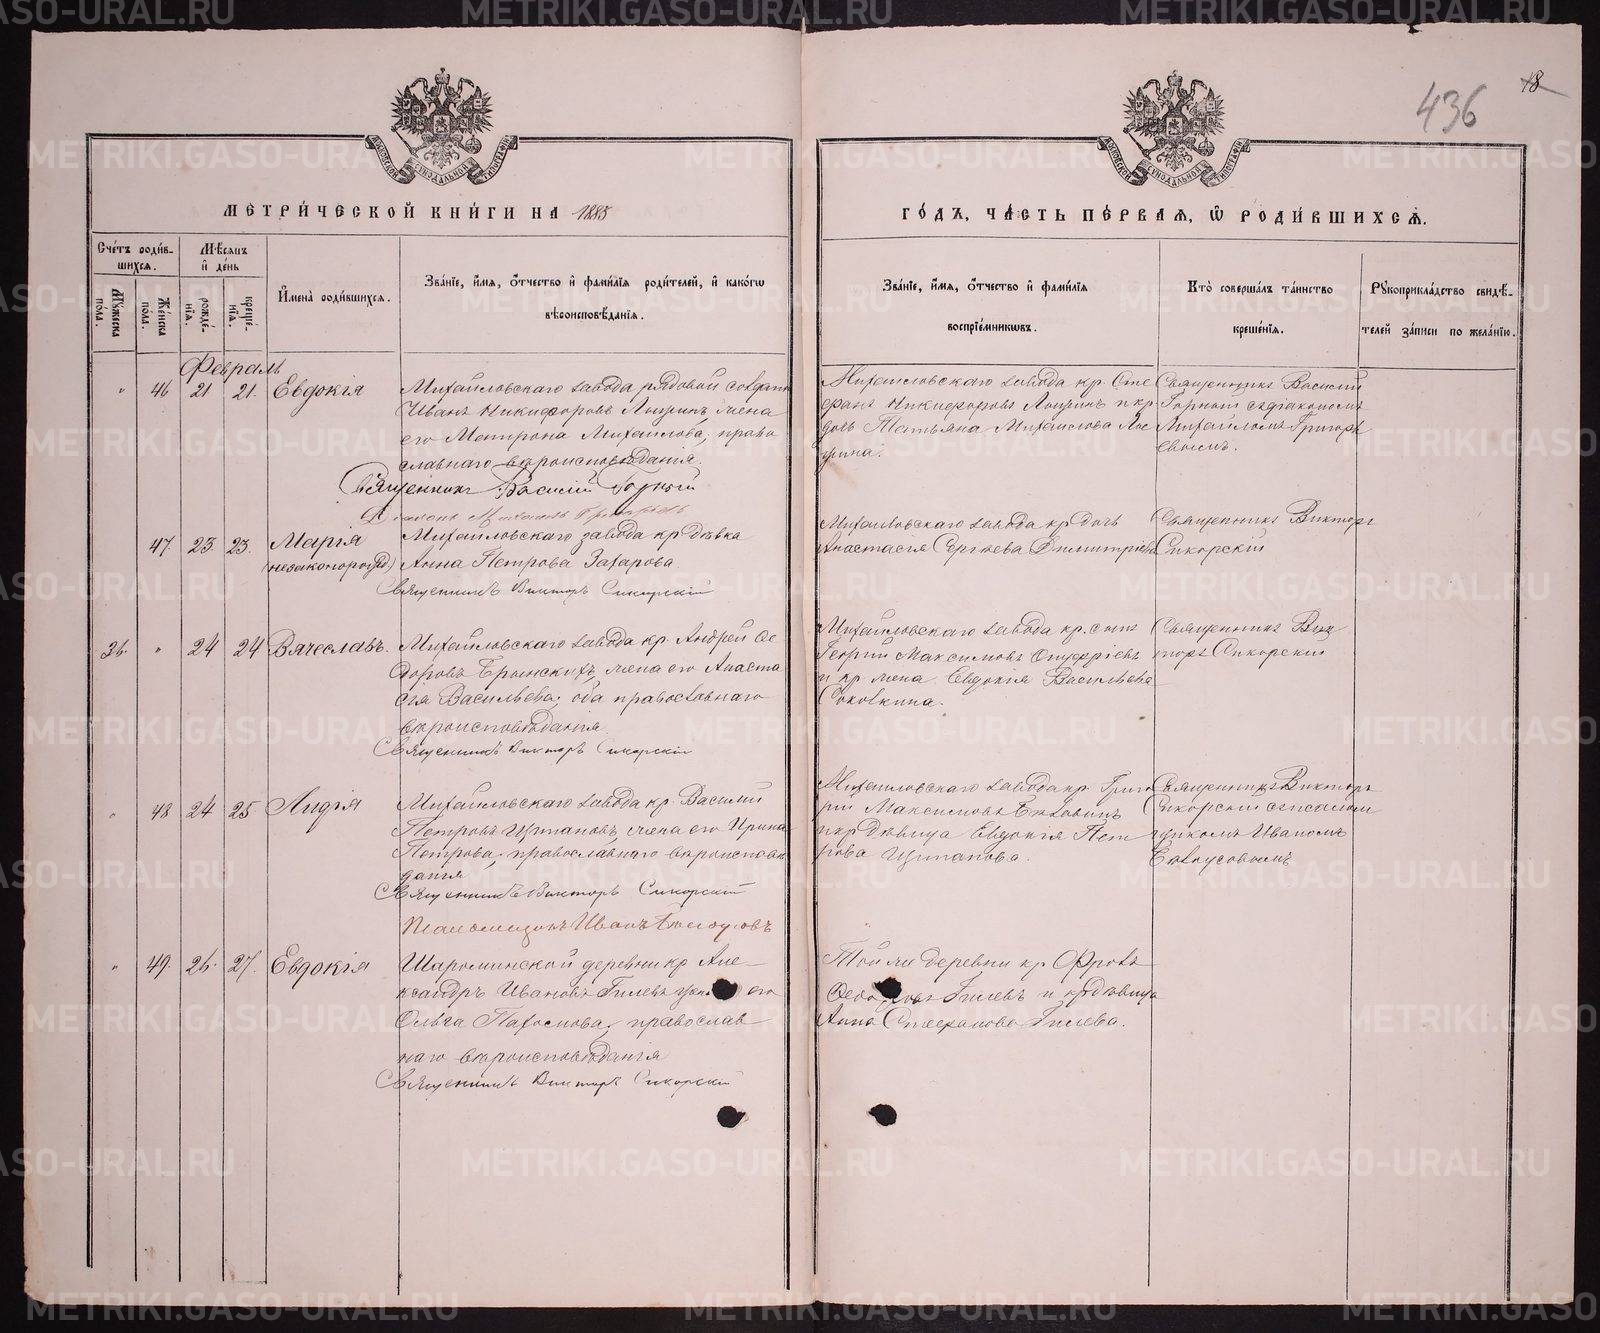 436
18
МЕТРИЧЕСКОЙ КНИГИ НА 1885
ГОДЪ, ЧАСТЬ ПЕРВАЯ, Ѿ РОДИВШИХСЯ.
Счетъ родив-
шихся.
Мѣсяцъ
и день
Мужеска
пола.
Женска
пола.
рожде-
нія.
креще-
нія.
Имена родившихся.
Званіе, имя, отчество и фамилія родителей, и какогѡ
вѣроисповѣданія.
Званіе, имя, отчество и фамилія
воспріемникѡвъ.
Кто совершалъ таинство
крещенія.
Рукоприкладство свидѣ-
телей записи по желанію.
Февраль
" 46 21 21. Евдокія
Михайловскаго завода рядовой солдатъ
Иванъ Никифоровъ Лощинъ, жена
его Матрона Михайлова, право
славнаго вѣроисповѣданія.
Священникъ Василій Горный
Діаконъ Михаилъ
Михайловскаго завода кр. Сте
фанъ Никифоровъ Лощинъ и кр.
дочь Татьяна Михайлова Ло
щина.
Священникъ Василій
Горный съ діакономъ
Михаиломъ Григорь
евымъ.
47. 23. 23. Марія
(незаконорожд)
Михайловскаго завода кр. дѣвка
Анна Петрова Захарова.
Священникъ Викторъ Сикорскій
Михайловскаго завода кр. дочь
Анастасія Сергѣева Димитріева
Священникъ Викторъ
Сикорскій
36. " 24 24 Вячеславъ.
Михайловскаго завода кр. Андрей Ѳе
доровъ Брынскихъ, жена его Анаста
сія Васильева, оба православнаго
вѣроисповѣданія
Священникъ Викторъ Сикорскій
Михайловскаго завода кр. сынъ
Георгій Максимовъ Онуфріевъ
и кр. жена Евдокія Васильева
Соковкина.
Священникъ Вик
торъ Сикорскій
" 48 24 25 Лидія
Михайловскаго завода кр. Василій
Петровъ Щипановъ, жена его Ирина
Петрова, православнаго вѣроисповѣ
данія
Священникъ Викторъ Сикорскій
Псаломщикъ Иванъ Бѣлоусовъ
Михайловскаго завода кр. Григо
рій Максимовъ
и кр. дѣвица Евдокія Пет
рова Щипанова.
Священникъ Викторъ
Сикорскій съ псалом
щикомъ Иваномъ
Бѣлоусовымъ
" 49. 26. 27. Евдокія
Шароминской деревни кр. Але
ксандръ Ивановъ Гилевъ жена его
Ольга Пахомова, православ
наго вѣроисповѣданія
Священникъ Викторъ Сикорскій
Той же деревни кр. Фролъ
Гилевъ и кр. дѣвица
Анна Стефанова Гилева.
METRIKI.GASO-URAL.RU